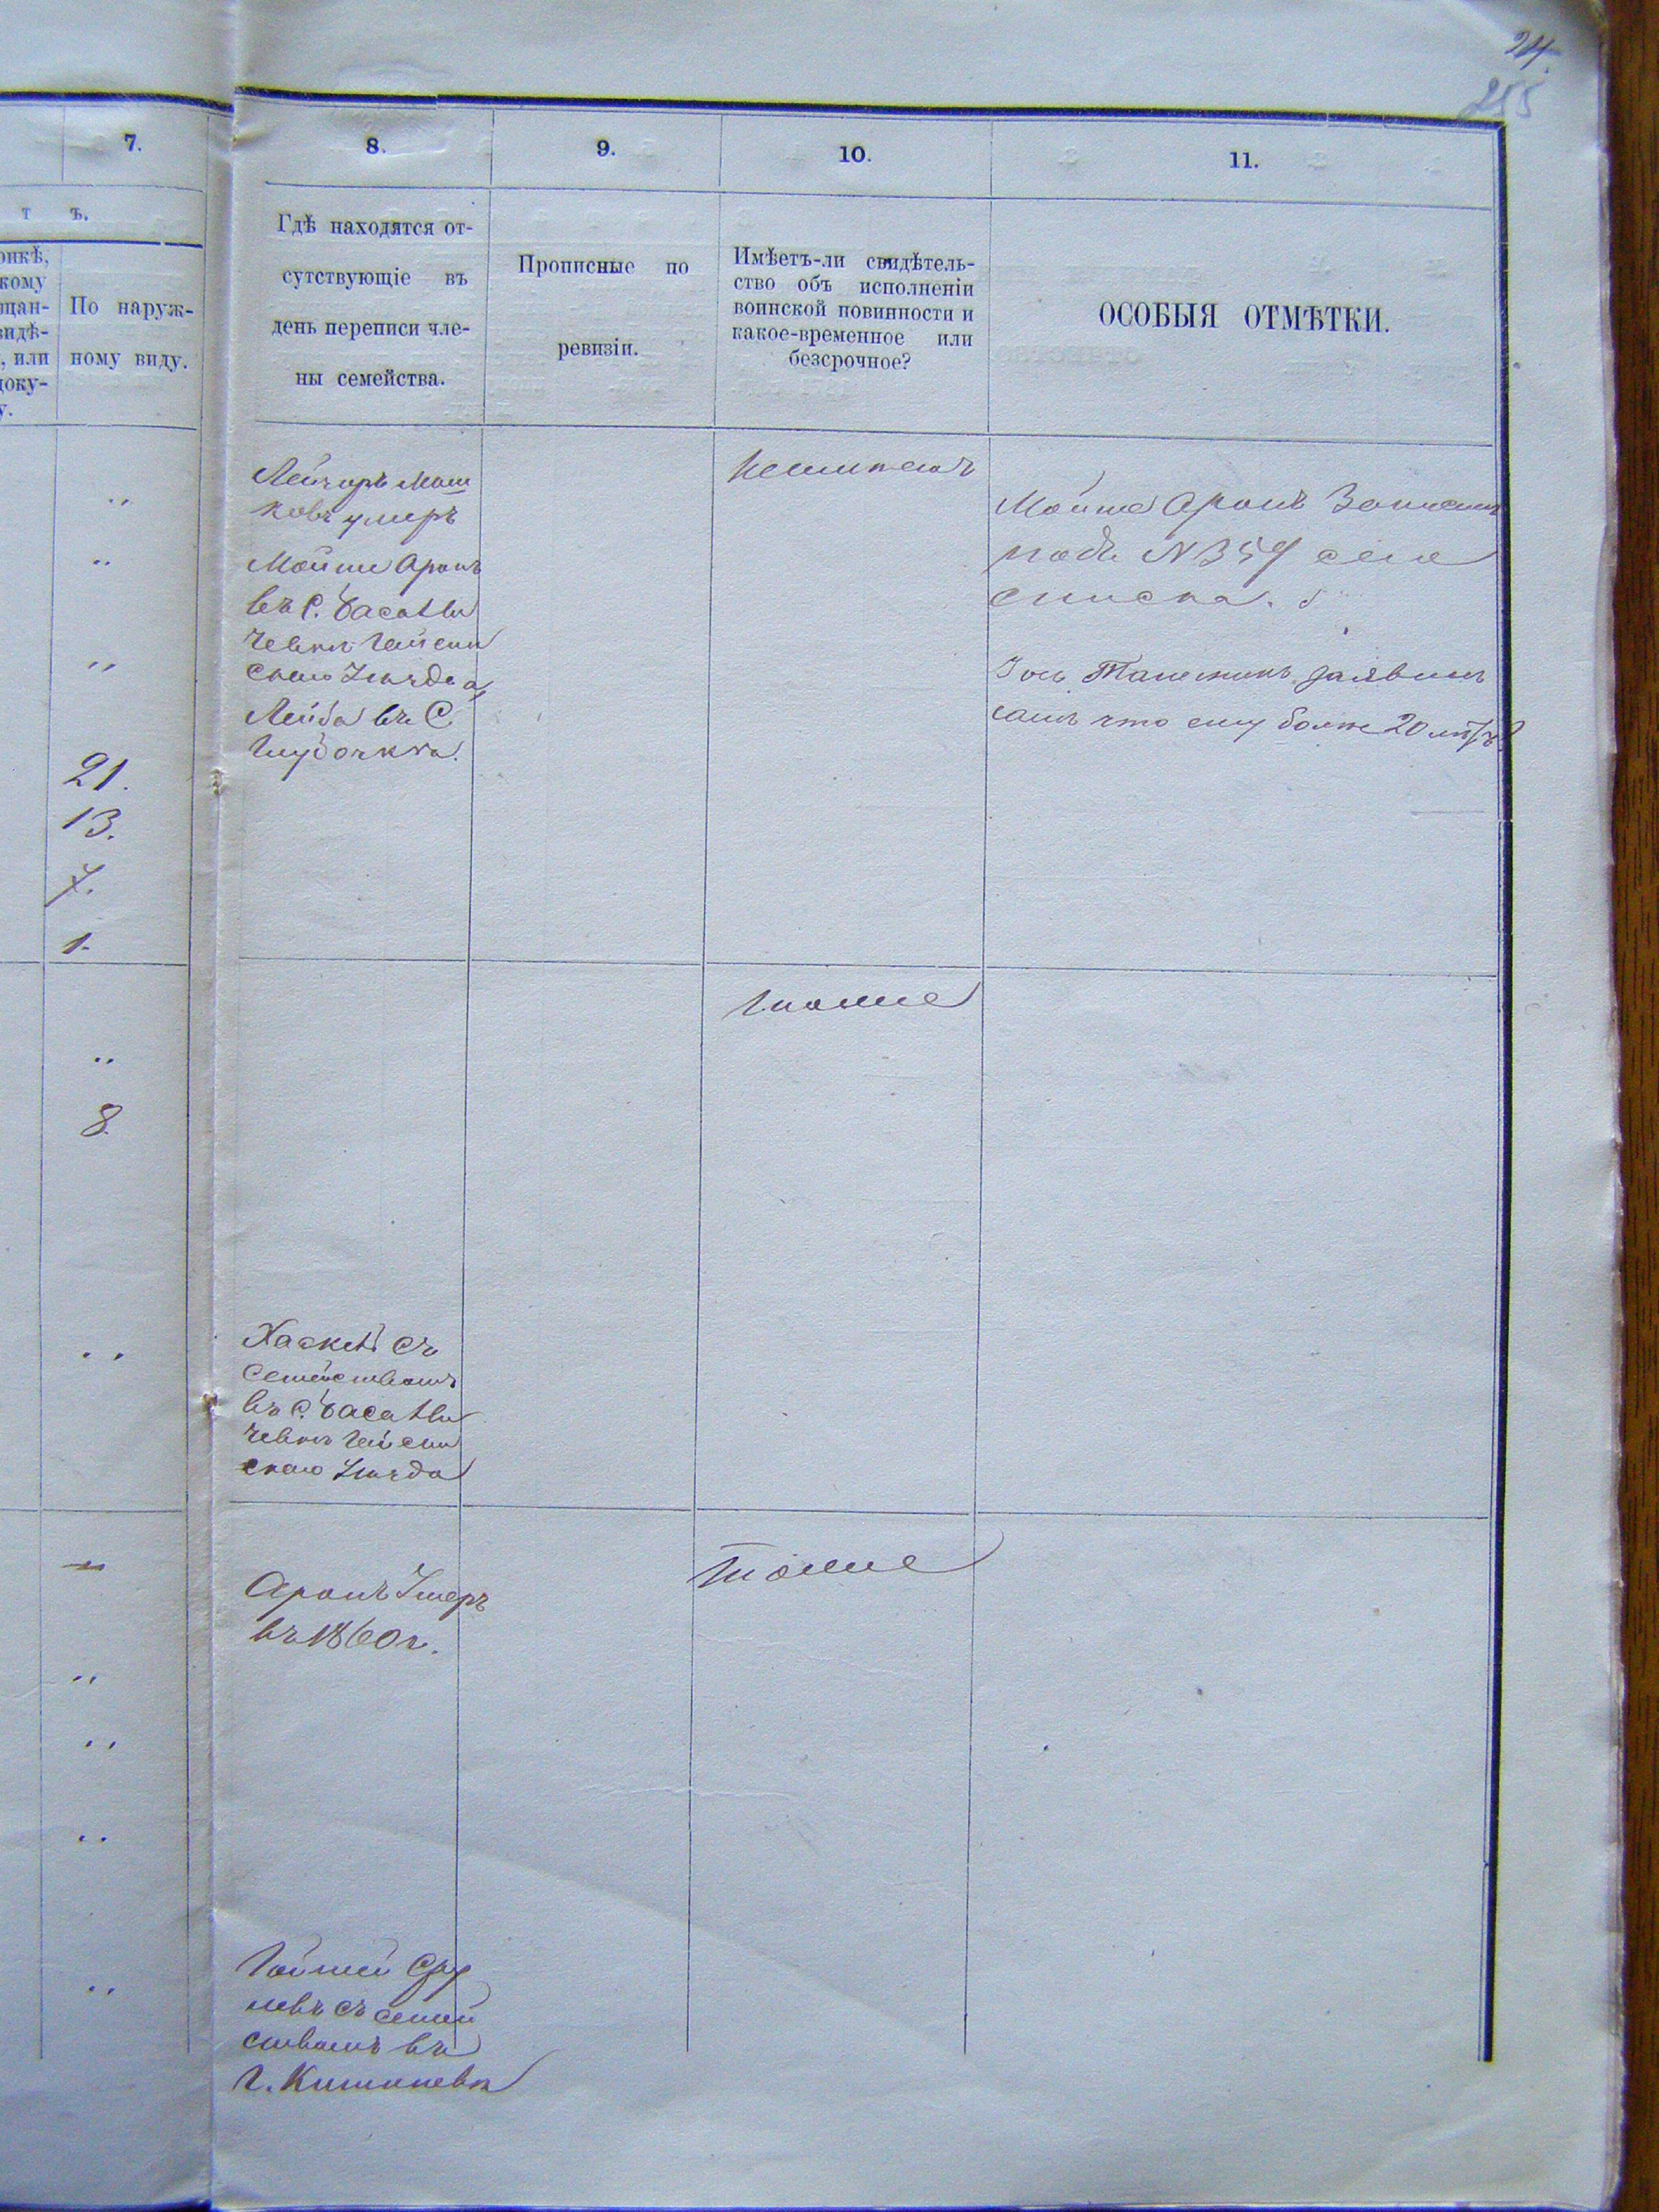 24.
255
7.
8.
9.
10.
11.
т ъ.
рикѣ,
кому
щан-
видѣ-
, или
доку-
у.
По наруж-
ному виду.
Гдѣ находятся от-
сутствующіе въ
день переписи чле-
ны семейства.
Прописные по
ревизіи.
Имѣетъ-ли свидѣтель-
ство объ исполненіи
воинской повинности и
какое-временное или
безсрочное?
ОСОБЫЯ ОТМѢТКИ.
21.
13.
7.
1.
Мош
ковъ умеръ
Мойше Аронъ
въ С.
чевки Гайсин
скаго Уѣзда,
Лейба въ С.
Мойше Аронъ Записан
подъ N 359 сего
списка.
заявилъ
самъ что ему болѣе 20 лѣтъ
тоже
8.
Хаскель съ
Семействомъ
въ С.
чевкѣ Гайсин
скаго Уѣзда
Аронъ Умеръ
въ 1860 г.
тоже
Сру
левъ съ семей
ствомъ въ
г. Кишиневѣ